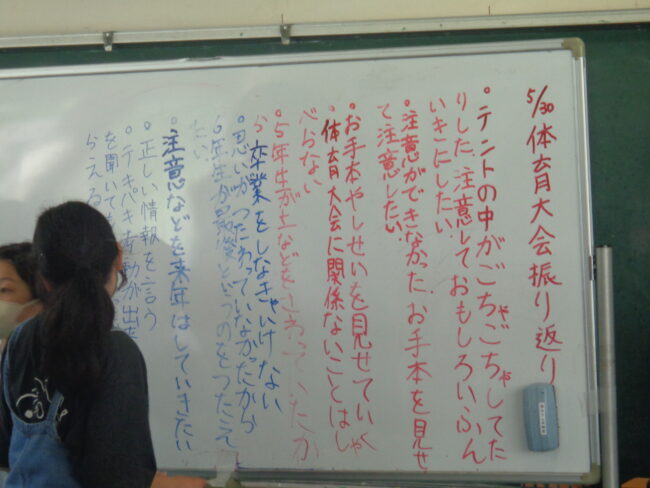 5/30 体育大会振り返り
・テントの中がごちゃごちゃしてた
りした、注意しておもしろいふん
いきにしたい
・注意ができなかった、お手本を見せ
て注意したい
・お手本やしせいを見せていく
・体育大会に関係ないことはしゃ
べらない
・5年生が土などをさわっていたか
ら 卒業をしなきゃいけない
・思いがつたわっていなかったから
6年生が最後というのをつたえ
たい
注意などを来年はしていきたい
・正しい情報を言う
・テキパキ行動が出来
を聞いても
らえる